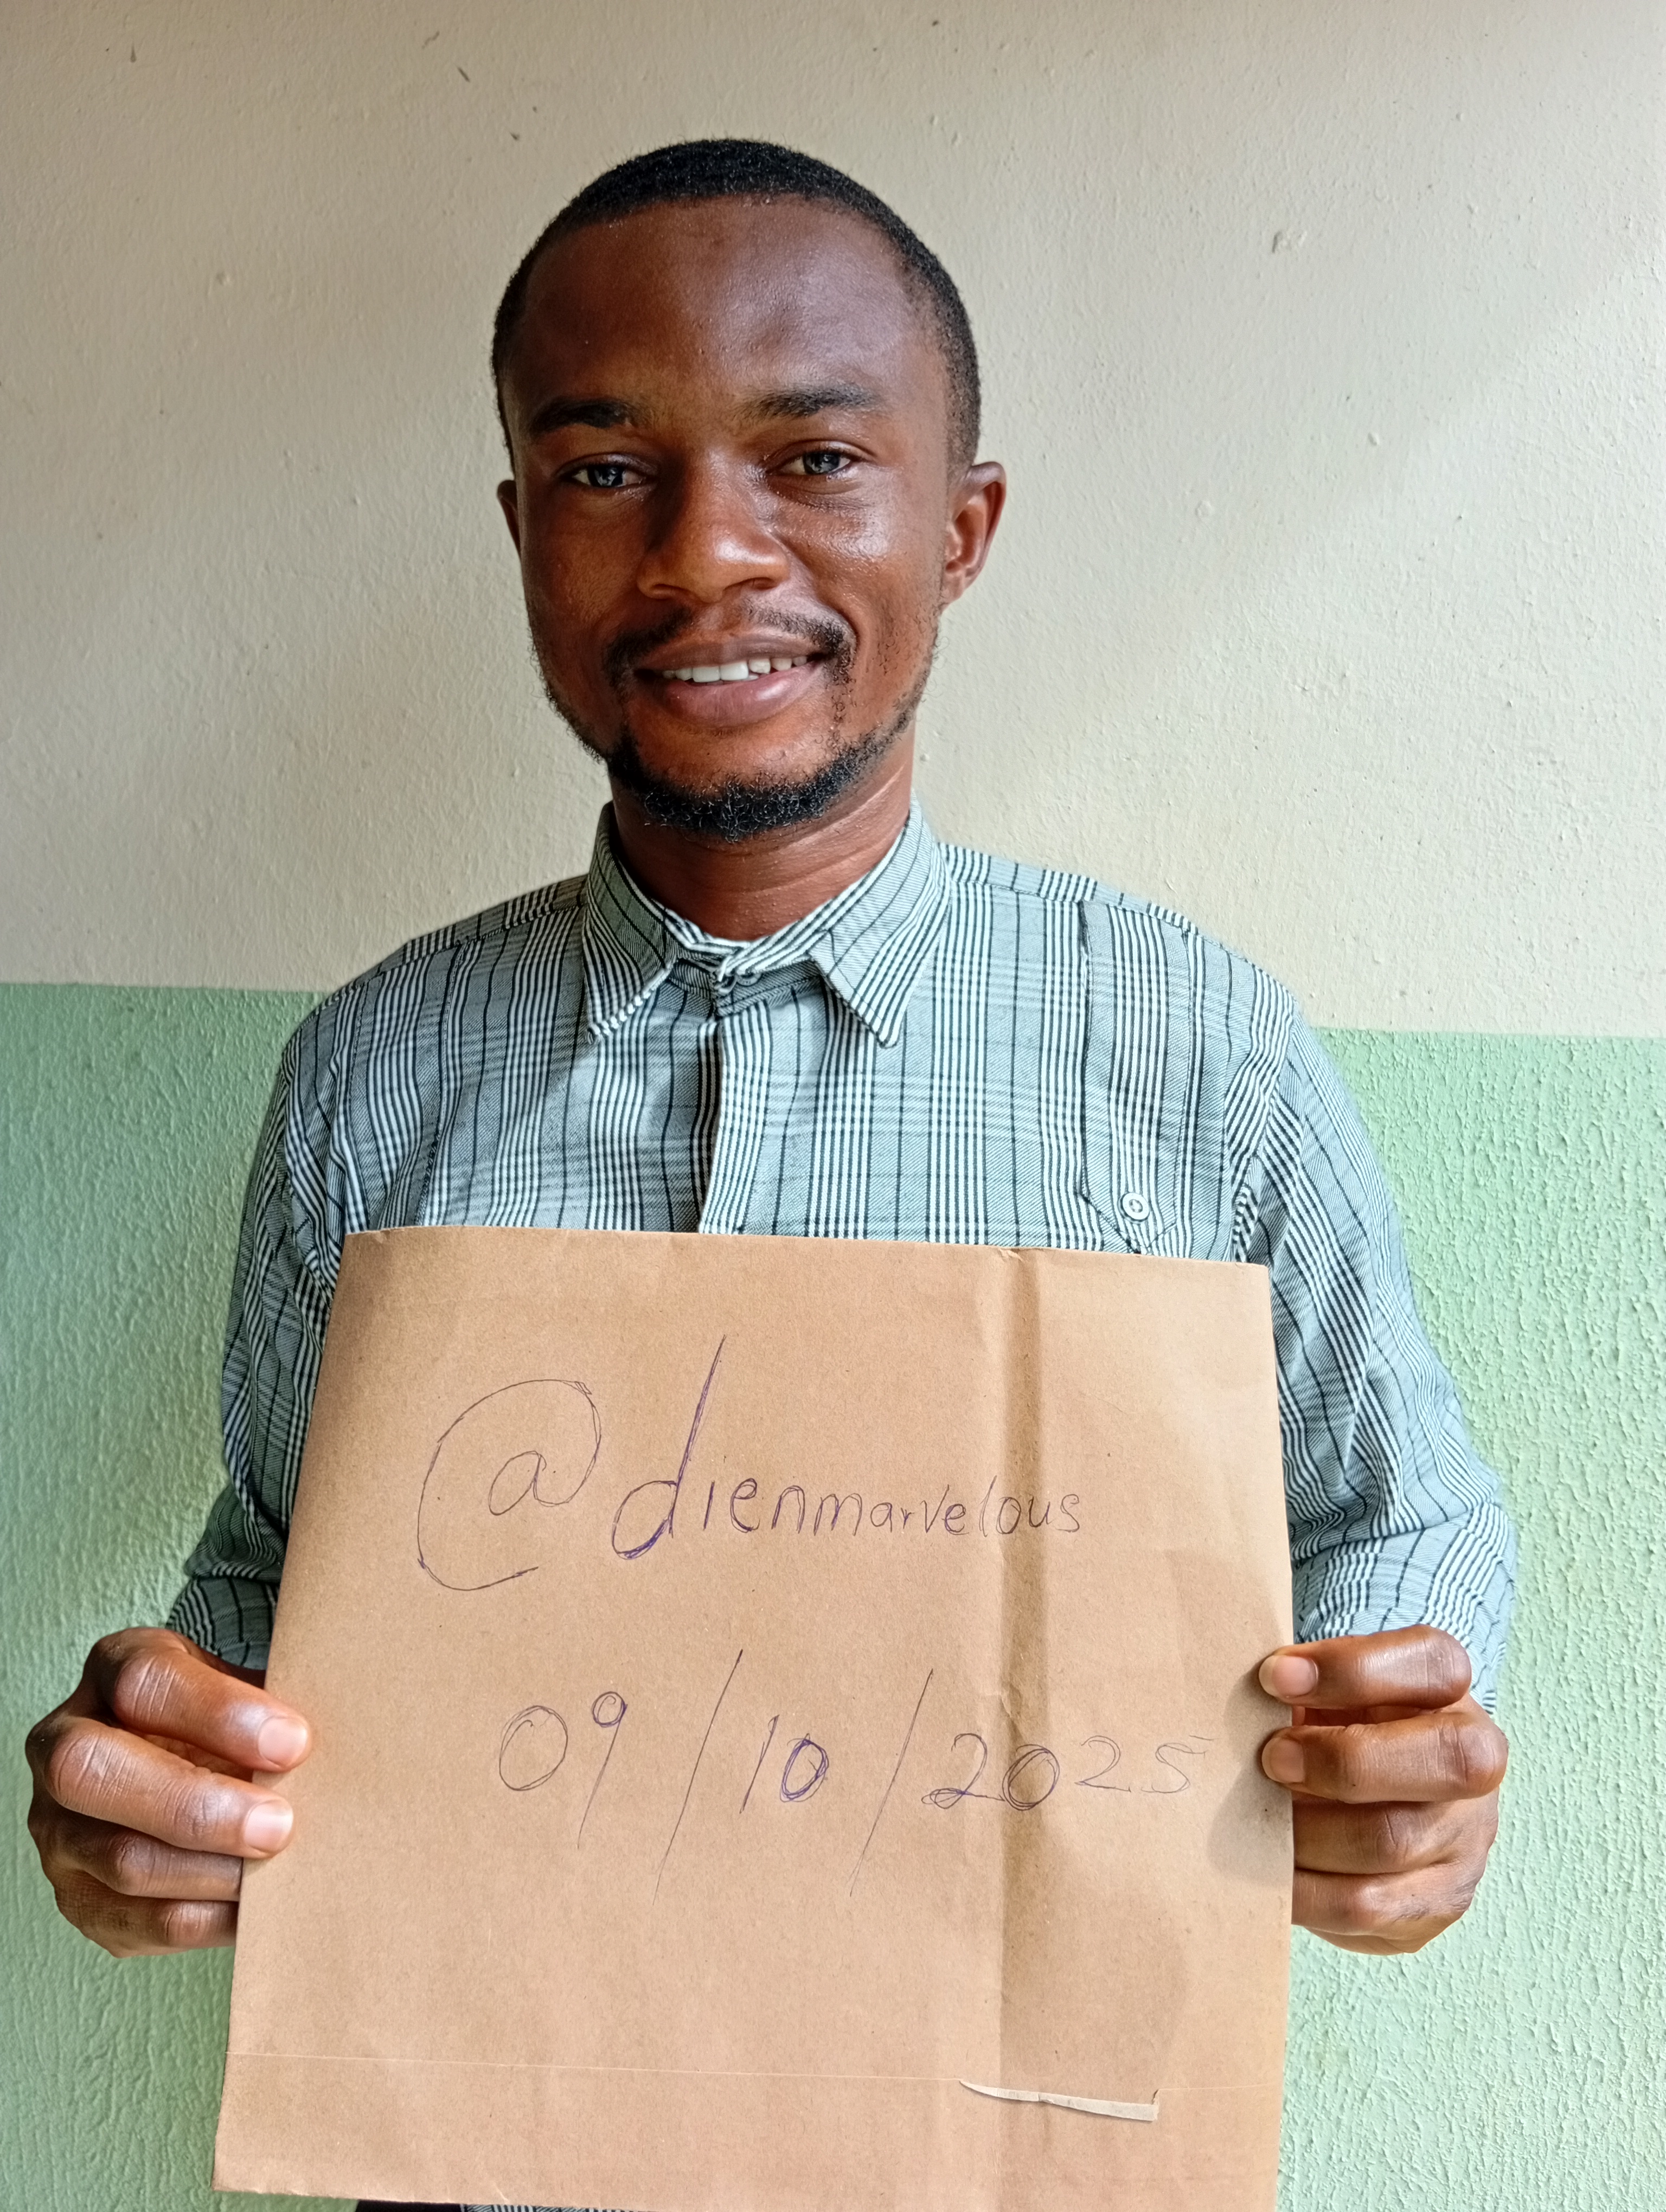 @dienmarvelous
09/10/2025